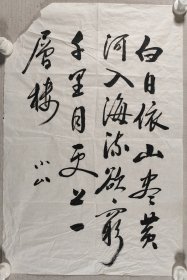 白日依山尽黄
河入海流欲窮
千里目更上一
層樓